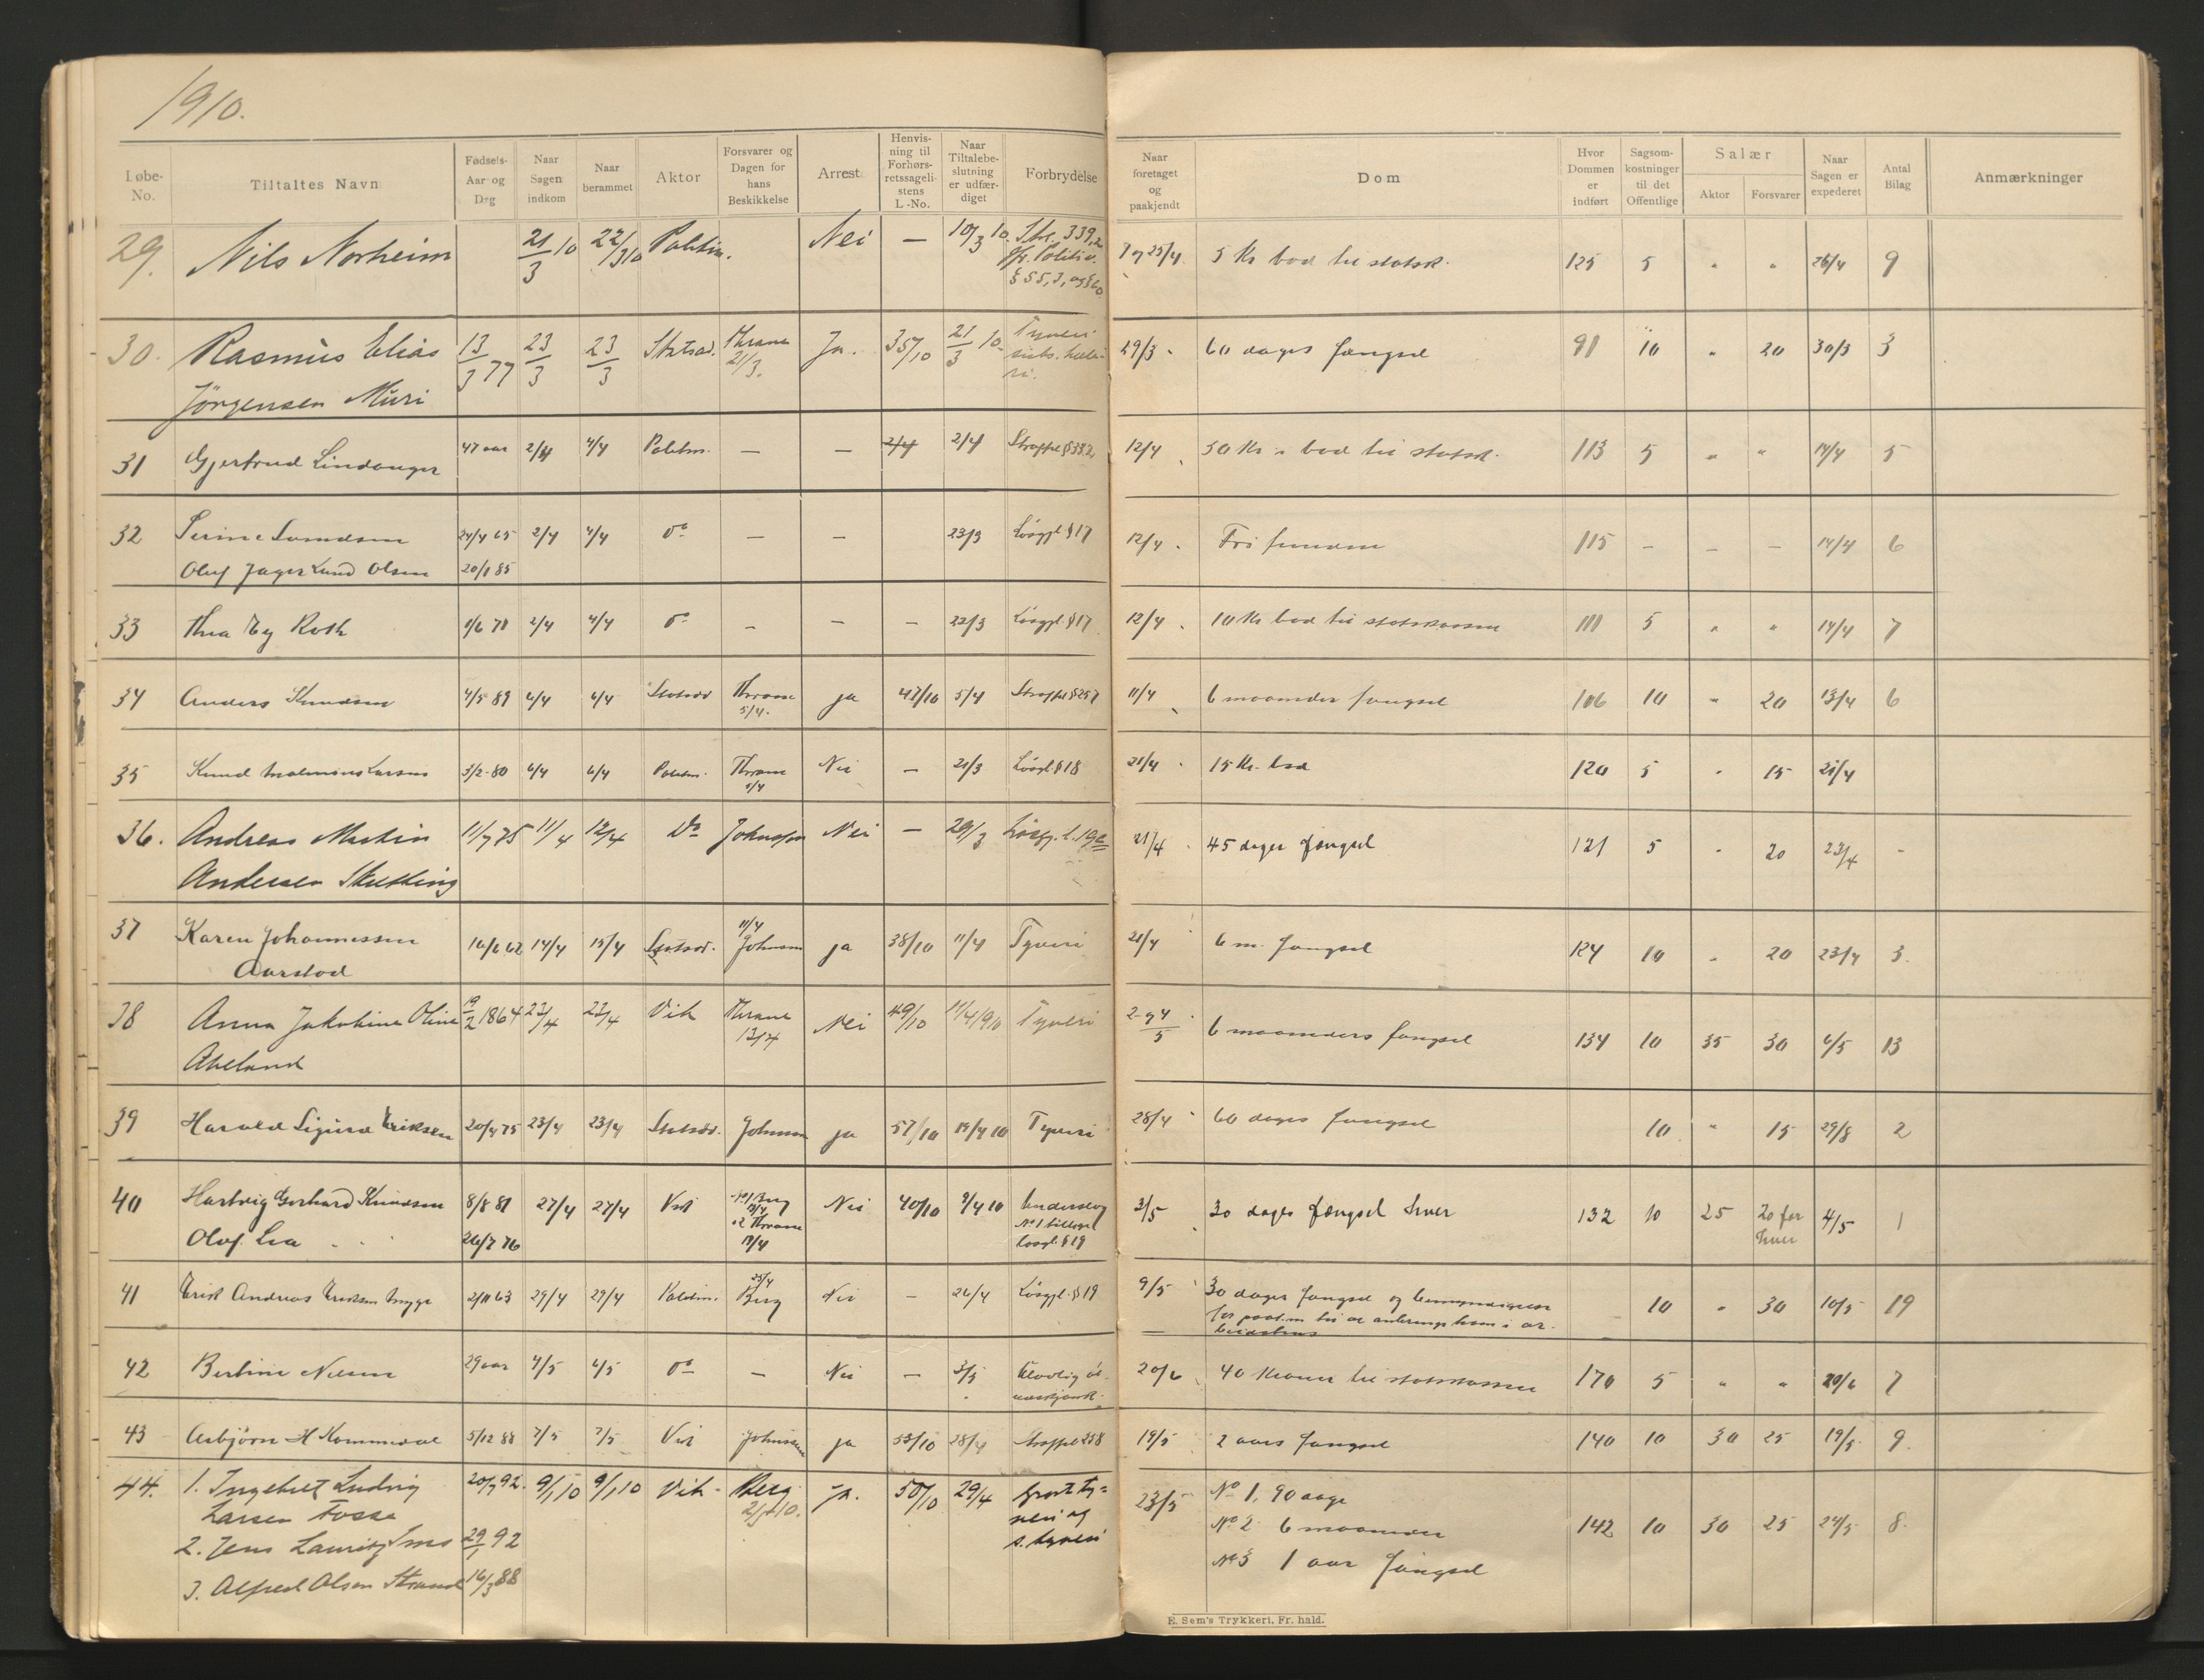 1910.
Løbe-No. Tiltaltes Navn Fødsels-Aar og Dag Naar Sagen indkom Naar berammet Aktor Forsvarer og Dagen for hans Beskikkelse Arrest Henvisning til Forhørsretssagelistens L.-No. Naar Tiltalebeslutning er udfærdiget Forbrydelse Naar foretaget og paakjendt Dom Hvor Dommen er indført Sagsomkostninger til det Offentlige Salær Aktor Forsvarer Naar Sagen er expederet Antal Bilag Anmærkninger
29. Nils Norheim 21/3 10 22/3 10 Politim. Nei — 10/3 10. Stl. 339,2 25/4 5 Kr bod til statsk. 125 5 " " 26/4 9
jfr. Politiv.
30. Rasmus Elias 13/3 77 23/3 23/3 Statsad. Thrane 21/3. Ja. 35/10 21/3 10. Tyveri 29/3 60 dages fængsel 91 10 " 20 30/3 3
Jörgensen Muri
31 Gjertrud Lindanger 47 aar 2/4 4/4 Politim. — — 2/4 2/4 12/4 50 Kr. bod til statsk. 113 5 " " 14/4 5
32 Serine Svendsen 24/4 65 2/4 4/4 do — — 23/3 Løsgjl § 17 12/4 Fri funden 115 — — — 14/4 6
Oluf Jager Lund Olsen 20/1 85
33 Thea Eg Roth 1/6 71 2/4 4/4 do — — — 22/3 Løsgjl § 17 12/4 10 Kr bod til statskassen 111 5 " " 14/4 7
34 Anders Knudsen 4/5 89 6/4 6/4 Statsad Thrane 5/4. ja 47/10 5/4 Straffel § 257 11/4 6 maaneder fængsel 106 10 " 20 13/4 6
35 Knud Larsen 3/2 80 6/4 6/4 Politim. Thrane 1/4 Nei — 21/3 Løsgl § 18 21/4 15 Kr. bod 120 5 " 15 21/4
36. Andreas Martin 11/7 75 11/4 12/4 Do Johnsen Nei — 29/3 Løsgj. l. 21/4 45 dages fængsel 121 5 " 20 23/4 -
Andersen Skutling
37 Karen Johannessen 16/6 62 14/4 15/4 Statsad. 11/4 Johnsen ja 38/10 11/4 Tyveri 21/4 6 m. fængsel 124 10 " 20 23/4 3.
Aarstod
38 Anna Jakobine Oline 19/2 1864 23/4 23/4 Vik Thrane 13/4 Nei 49/10 11/4 1910 Tyveri 2-4/5 6 maaneders fængsel 134 10 35 30 6/5 13
Abeland
39 Harald Sigurd Eriksen 20/4 75 23/4 23/4 Statsad. Johnsen ja 57/10 19/4 10 Tyveri 28/4 60 dages fængsel 10 " 15 29/8 2
40 Hartvig Gerhard Knudsen 8/8 81 27/4 27/4 Vik No 1 Berg Nei 40/10 9/4 10 Underslag 3/5 30 dages fængsel hver 132 10 25 20 for hver 4/5 1
Olaf Lea 26/7 76 2 Thrane No 1 tillige Løsgl. § 19
41 Erik Andreas Eriksen 2/11 63 29/4 29/4 Politim. 25/4 Berg Nei — 26/4 Løsgjl. § 19 9/5 30 dages fængsel og bemyndigelse 10 " 30 10/5 19
42 Bertine Nilsen 29 aar 4/5 4/5 do — Nei — 3/5 Ulovlig øl- 20/6 40 kroner til statskassen 170 5 " " 20/6 7
udskjænk.
43 Asbjørn H Kommedal 5/12 88 7/5 7/5 Vik Johnsen ja 53/10 28/4 Straffel 258 19/5 2 aars fængsel 140 10 30 25 19/5 9.
44. 1. Ingebret Ludvig 20/7 92. 9/5 10 9/5 10 Vik Berg 2/5 10. Ja. 50/10 29/4 Grovt ty- 23/5 No 1. 90 dage 142 10 30 25 24/5 8.
Larsen Fosse veri og
2. Jens Lauritz 29/1 92 s. tyveri No 2 6 maaneder
3. Alfred Olsen Strand 16/3 88 No 3 1 aar fængsel
E. Sem's Trykkeri, Fr. hald.